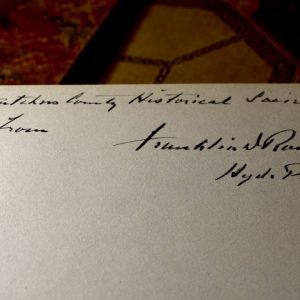 Dutchess County Historical Socie
From
Franklin D Roo
Hyde P